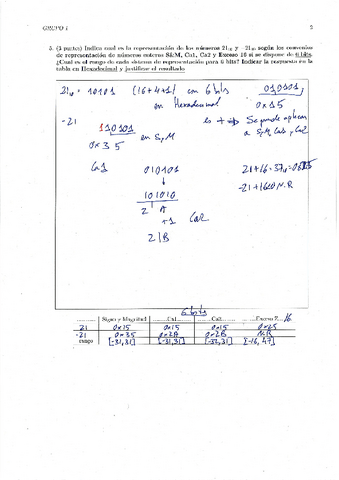 GRUPO 1 3
5. (3 puntos) Indica cual es la representación de los números 21₁₀ y -21₁₀ según los convenios
de representación de números enteros S&M, Ca1, Ca2 y Exceso 16 si se dispone de 6 bits.
¿Cual es el rango de cada sistema de representación para 6 bits? Indicar la respuesta en la
tabla en Hexadecimal y justificar el resultado
21₁₀ = 10101 (16+4+1) con 6 bits 010101
en Hexadecimal 0x15
-21 110101 en S y M
es + ⇒ Se puede aplicar
a SyM Ca1 y Ca2
0x35
Ca1 010101
↓
101010
2 A
+1 Ca2
2 | B
21+16=37₁₀=0x25
-21+16<0 N.R
6 bits
Signo y Magnitud Ca1 Ca2 Exceso Z 16
21 0x15 0x15 0x15 0x25
-21 0x35 0x2A 0x2B N.R
rango [-31,31] [-31,31] [-32,31] [-16,47]